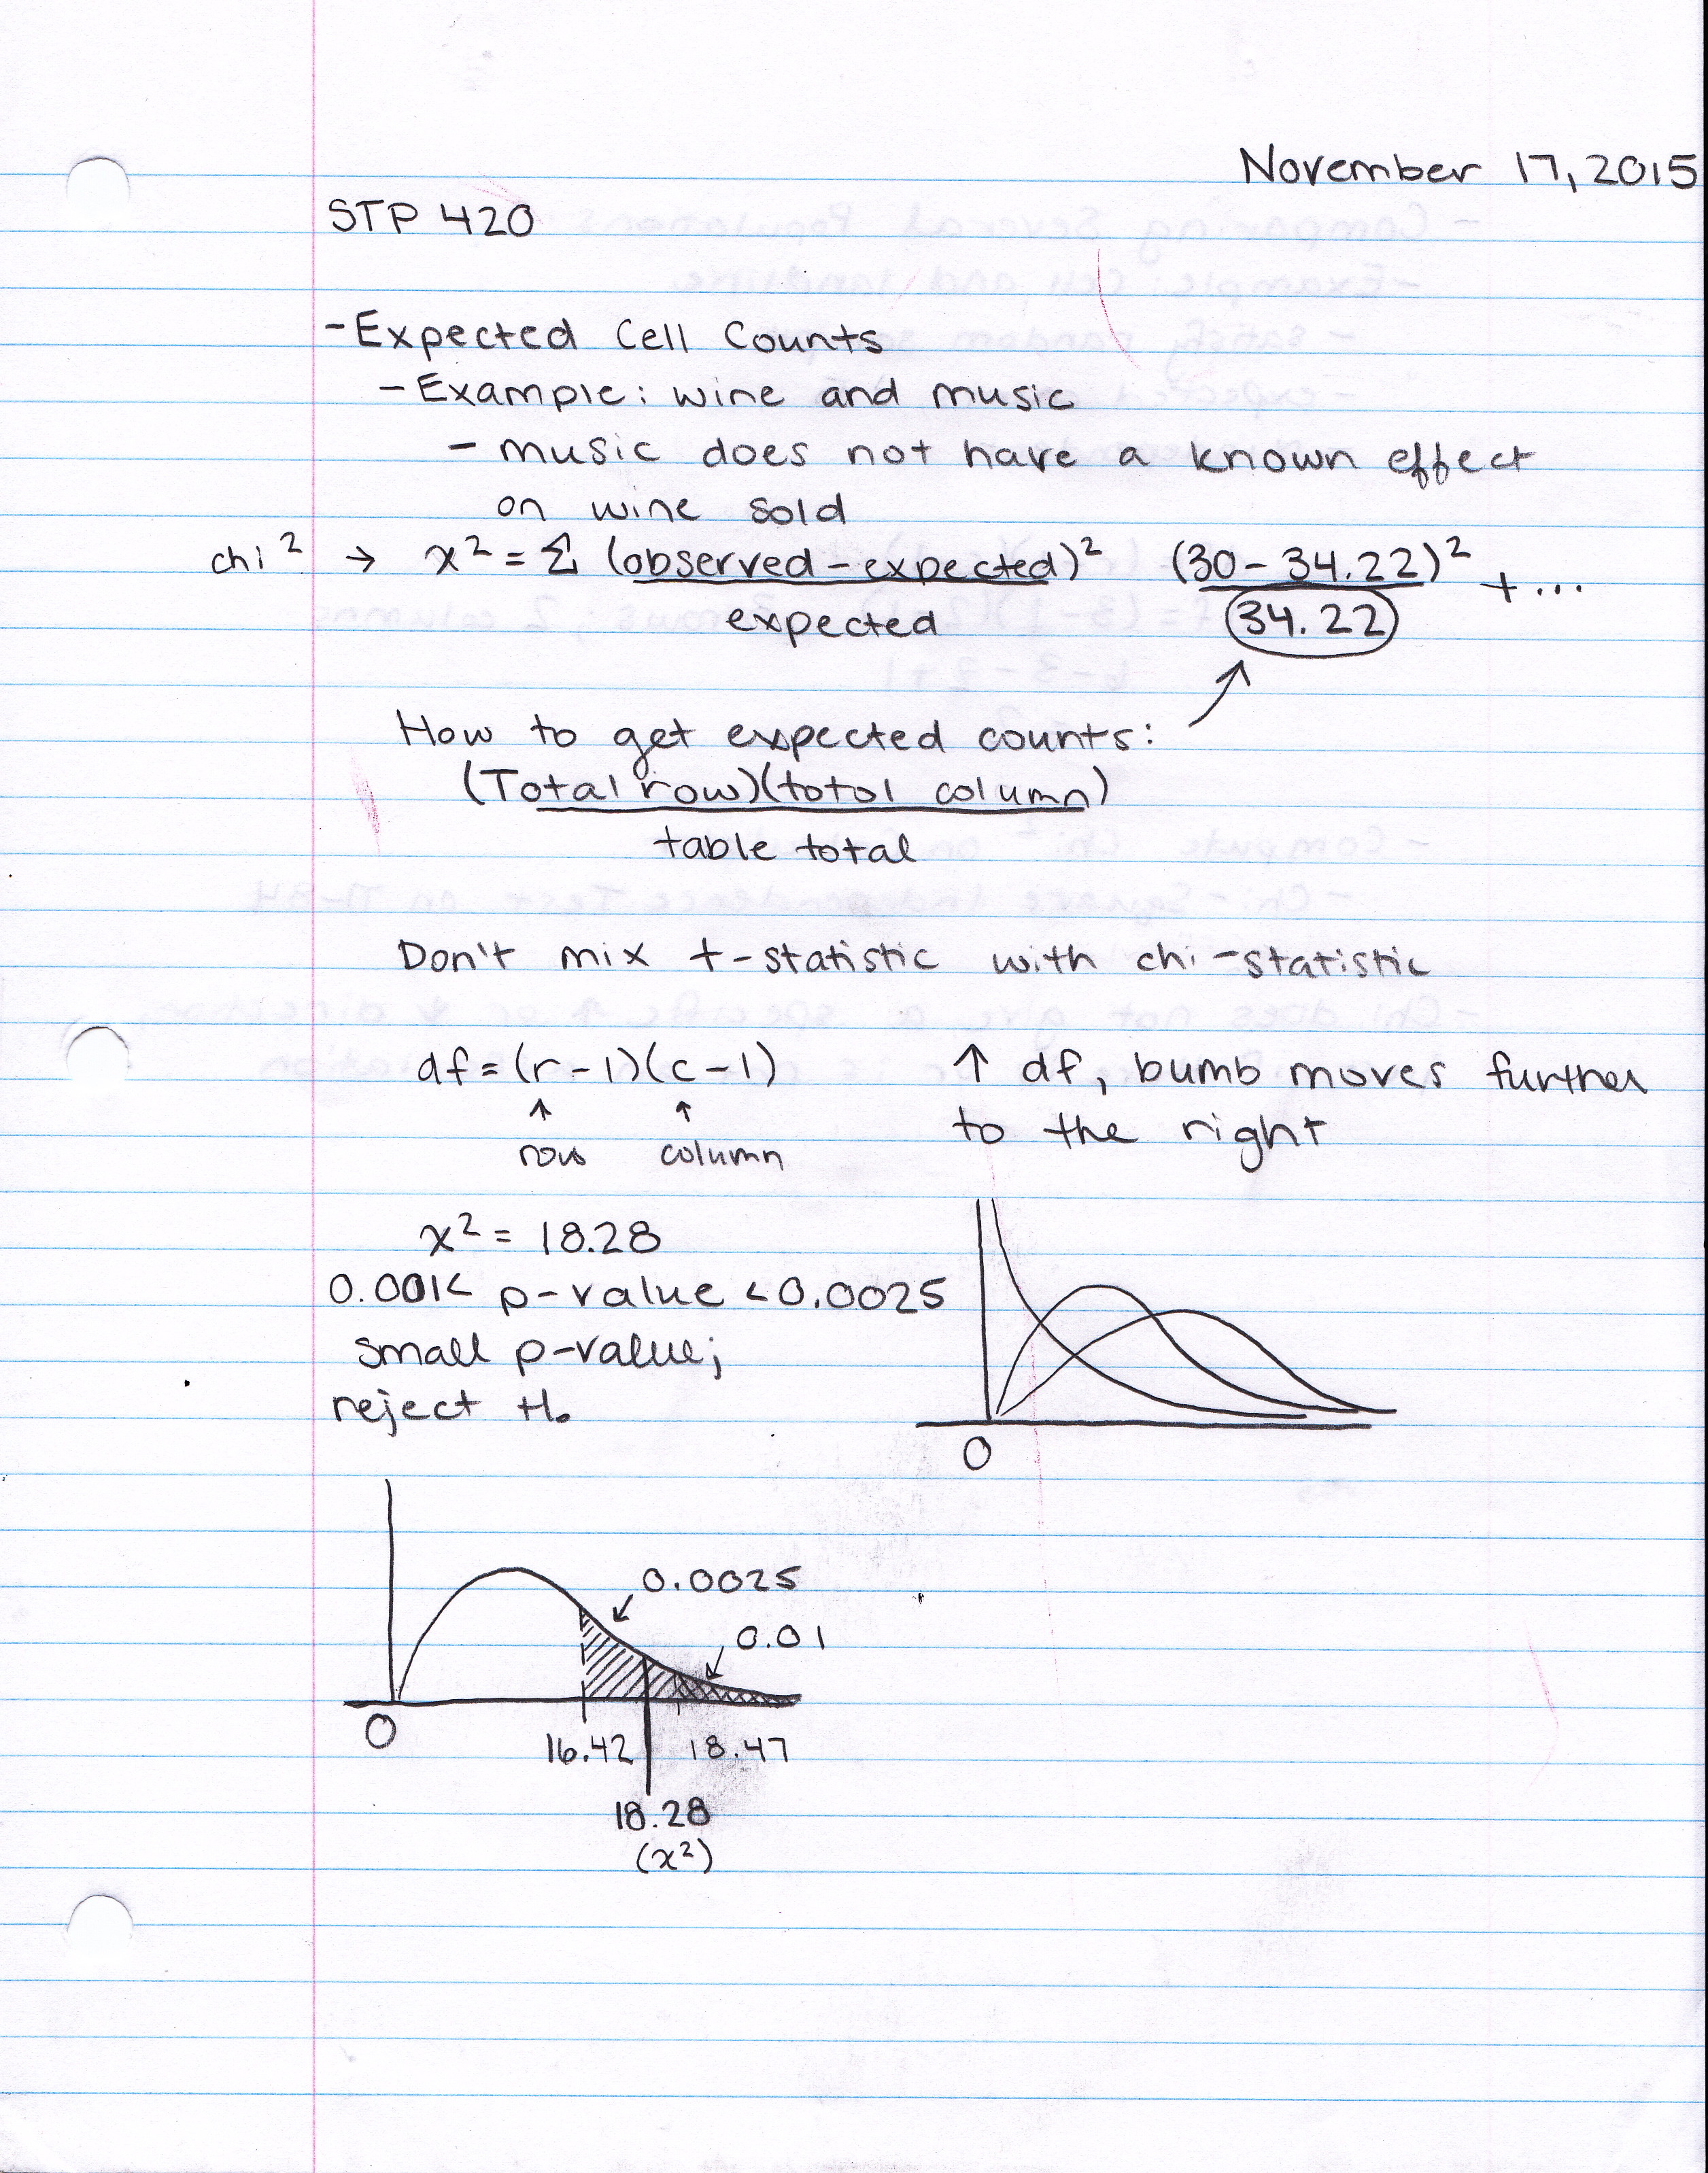 November 17, 2015
STP 420
- Expected Cell Counts
- Example: wine and music
- music does not have a known effect
on wine sold
chi² → x² = Σ (observed - expected)² (30 - 34.22)² + ...
expected 34.22
How to get expected counts:
(Total row)(total column)
table total
Don't mix t-statistic with chi-statistic
df = (r-1)(c-1) ↑ df, bumb moves further
↑ ↑ to the right
row column
x² = 18.28
0.001< p-value <0.0025
small p-value;
reject H₀
0
0.0025
0.01
0
16.42 18.47
18.28
(x²)